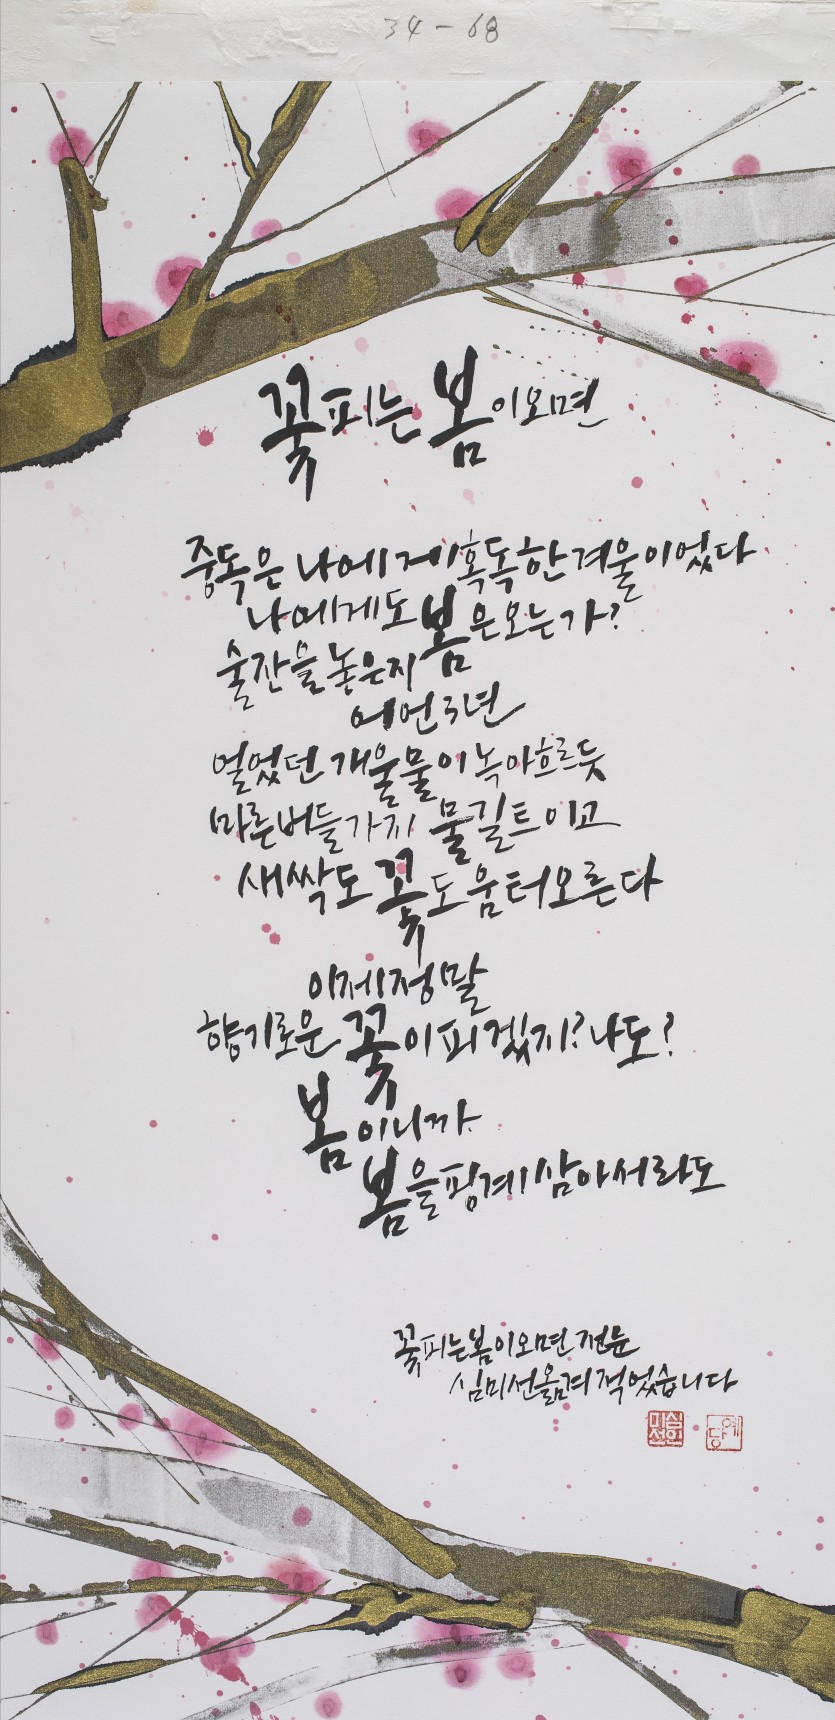 34-68
꽃피는 봄이오면
중독은 나에게 혹독한 겨울이었다
나에게도 봄은 오는가?
술잔을 놓은지
어언 3년
얼었던 개울물이 녹아 흐르듯
마른 버들가지 물길 트이고
새싹도 꽃도 움터 오른다
이제 정말
향기로운 꽃이 피겠지? 나도?
봄이니까
봄을 핑계 삼아서라도
꽃피는 봄이오면 전문
심미선 옮겨 적었습니다
심미선인
예당